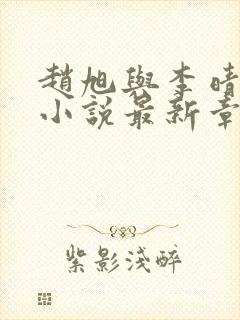 趙旭與李晴
小說最新章
紫影淺醉